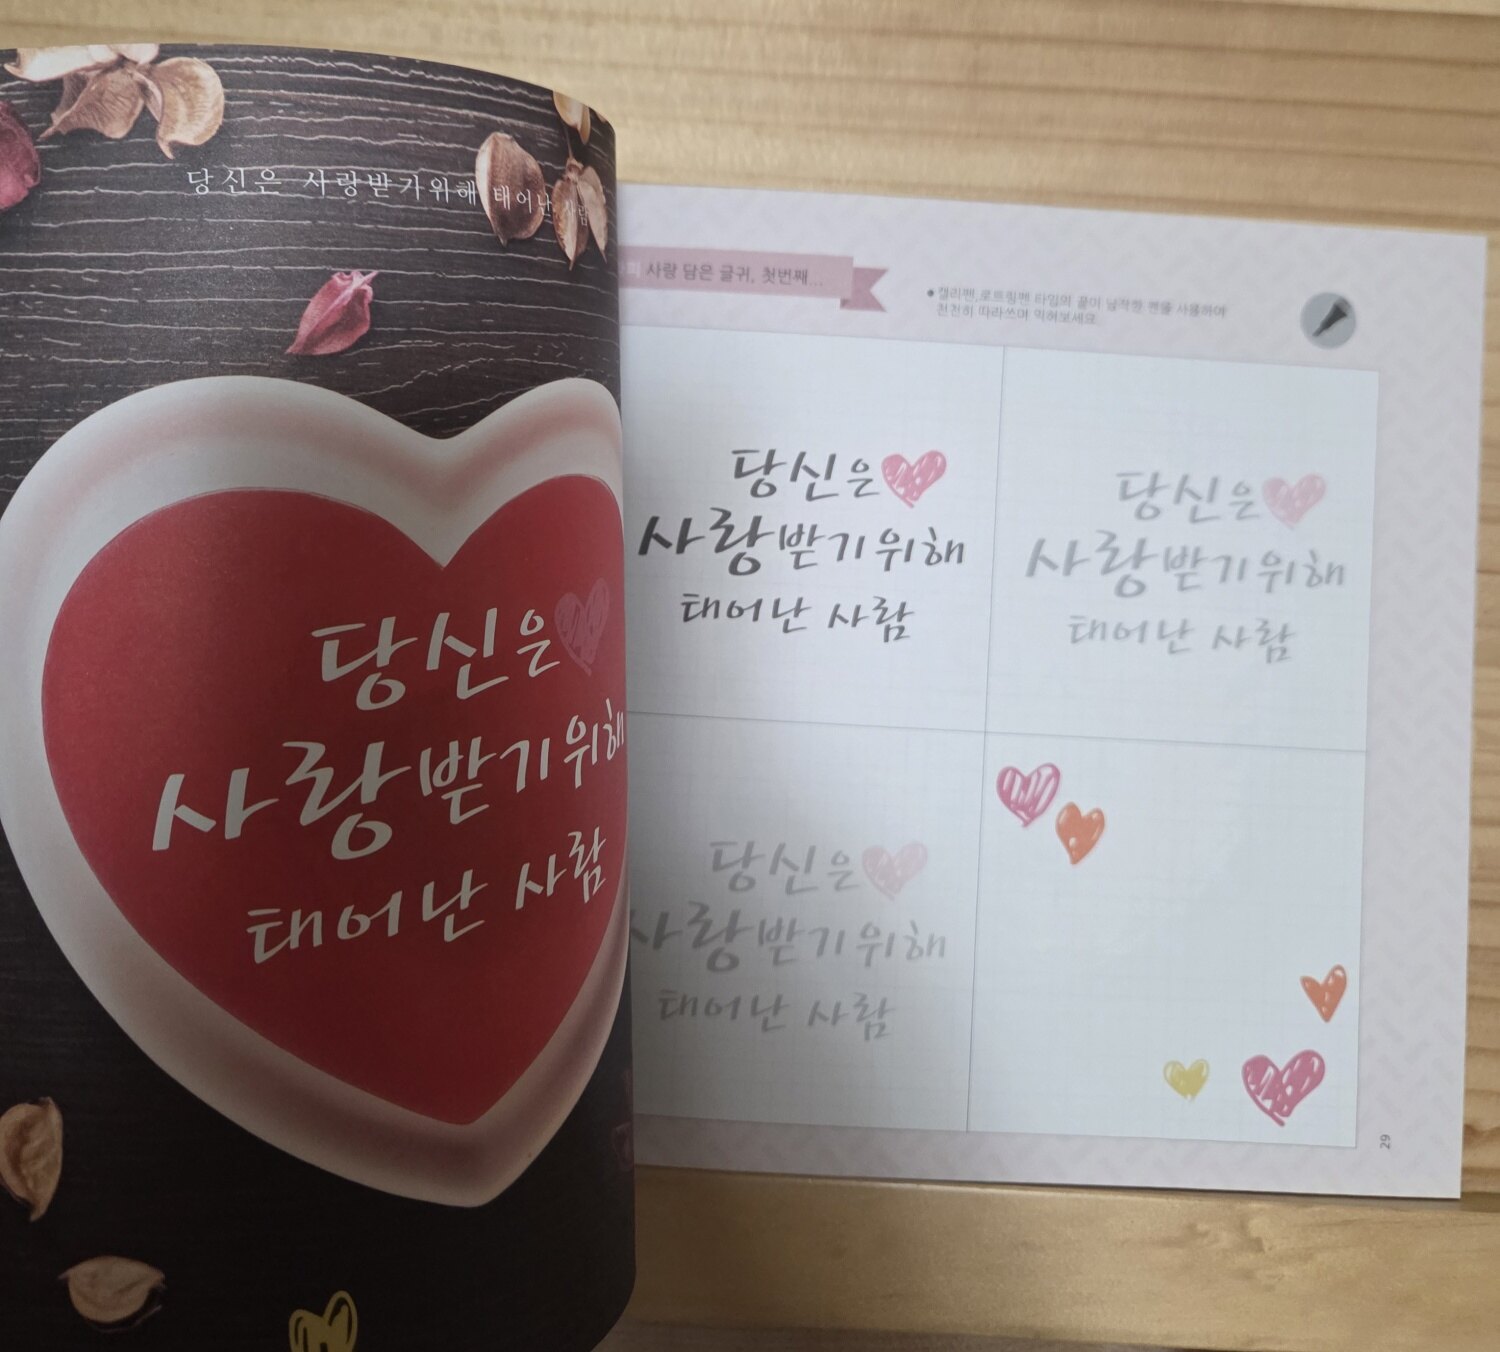 당신은 사랑받기위해 태어난 사람
당신은
사랑받기위해
태어난 사람
사랑 담은 글귀, 첫번째...
캘리펜,로트링펜 타입의 끝이 납작한 펜을 사용하여
천천히 따라쓰며 익혀보세요
당신은
사랑받기위해
태어난 사람
당신은
사랑받기위해
태어난 사람
당신은
사랑받기위해
태어난 사람
29